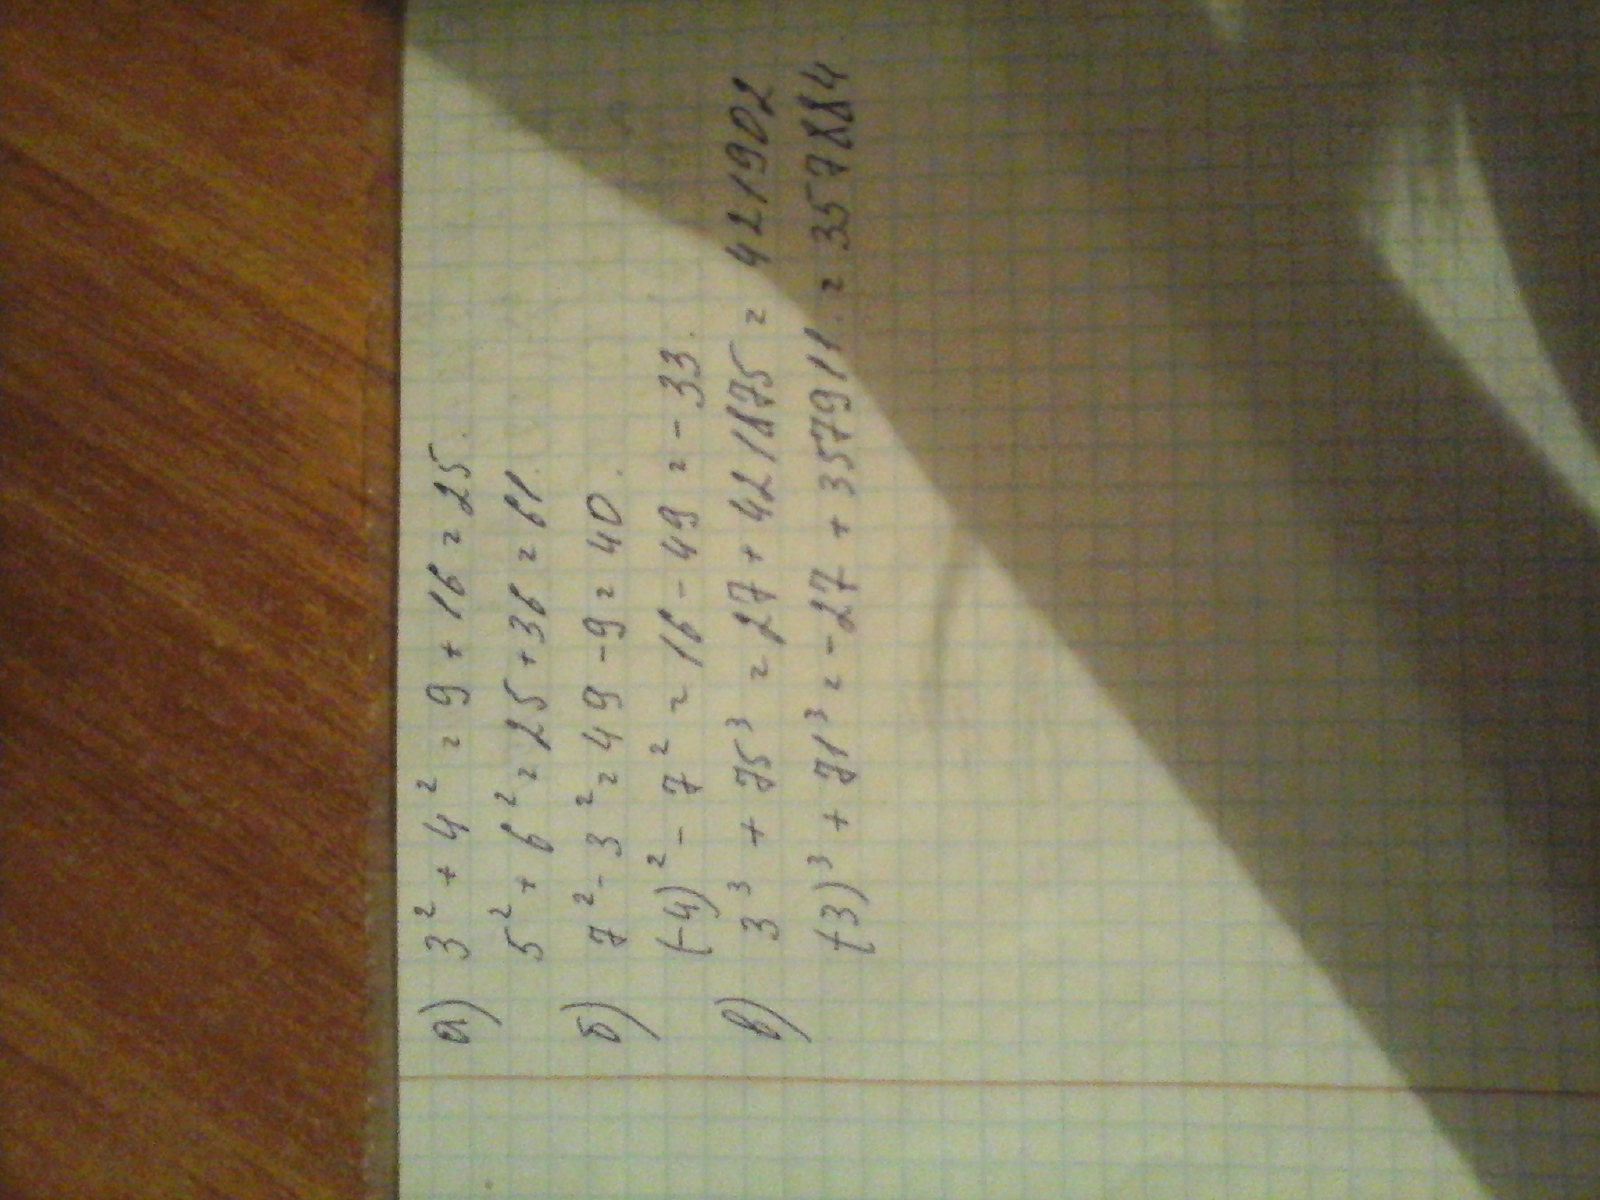 а) 3² + 4² = 9 + 16 = 25.
5² + 6² = 25 + 36 = 61.
б) 7² - 3² = 49 - 9 = 40.
(-4)² - 7² = 16 - 49 = - 33.
в) 3³ + 75³ = 27 + 421875 = 421902
(-3)³ + 71³ = - 27 + 357911. = 357884